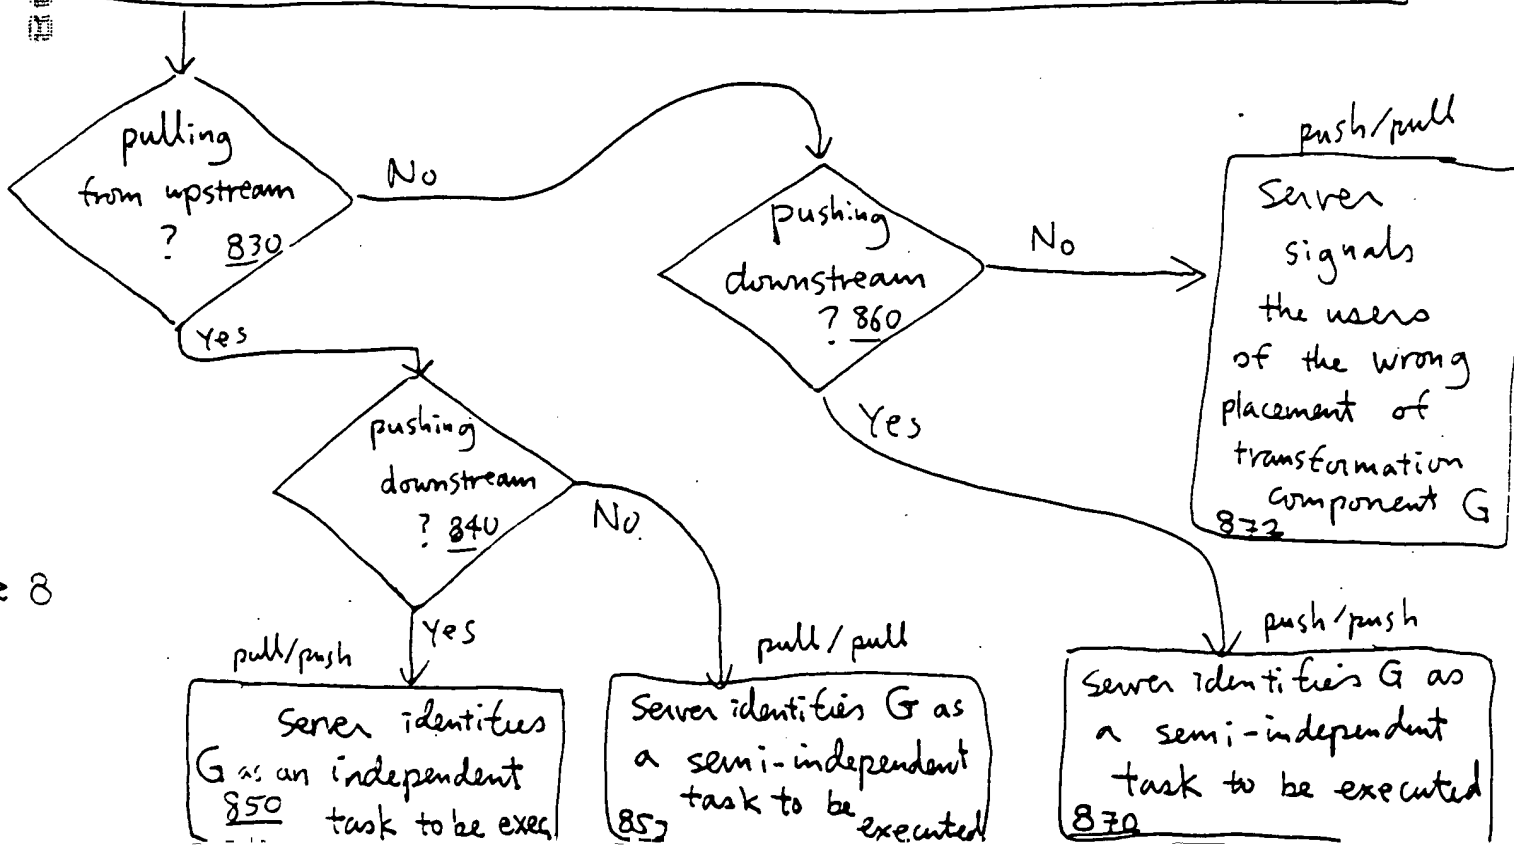 pulling
from upstream
? 830
No
Yes
pushing
downstream
? 860
No
Yes
push/pull
Server
signals
the users
of the wrong
placement of
transformation
component G
872
pushing
downstream
? 840
No
Yes
8
pull/push
Server identifies
G as an independent
850
task to be exec
pull/pull
Server identifies G as
a semi-independent
task to be
executed
852
push/push
Server identifies G as
a semi-independent
task to be executed
870